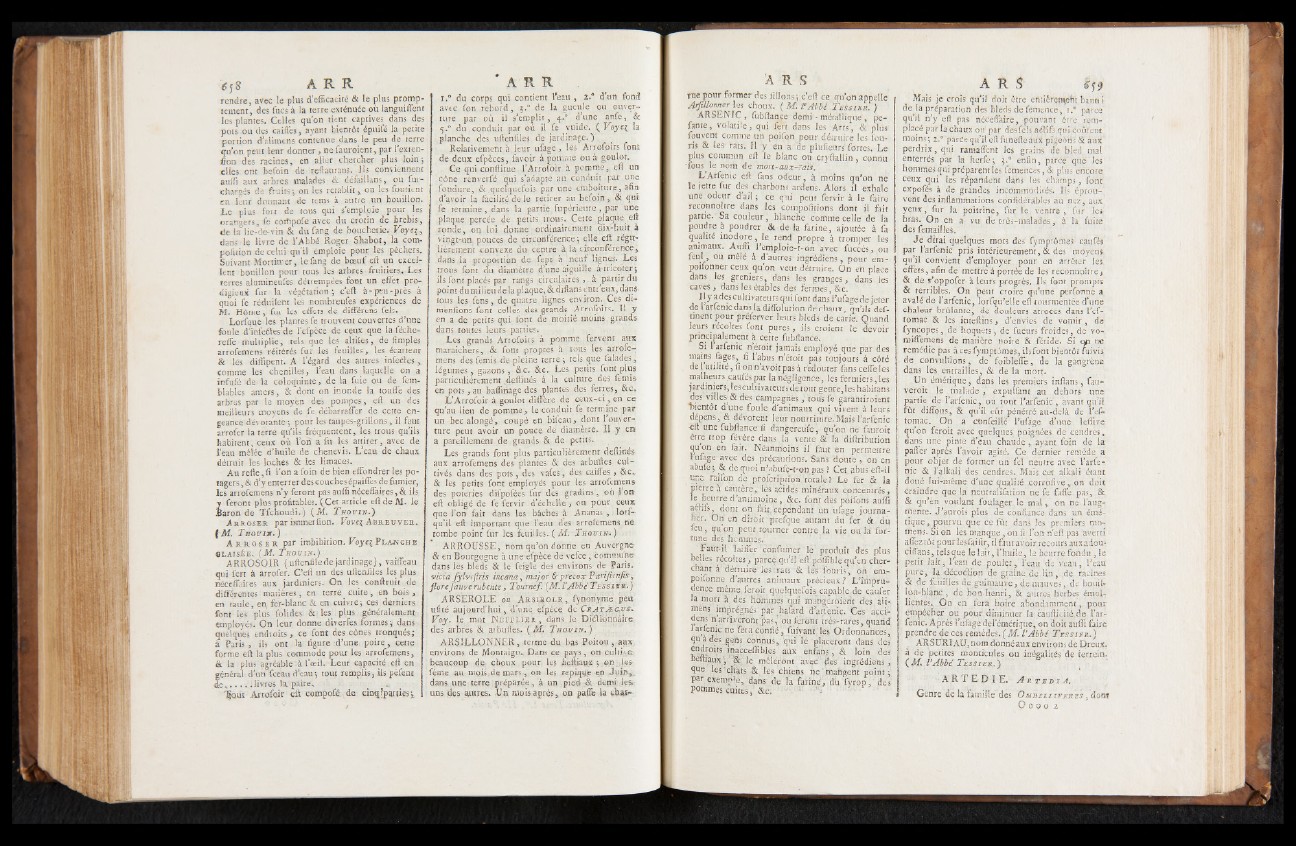 658 A R R
rendre, avec le plus d'efficacité & le plus promp-
tement, des sucs à la terre exténuée ou languissent
les plantes. Celles qu'on tient captives dans des
pots ou des caisses, ayant bientôt épuisé la petite
portion d'alimens contenue dans le peu de terre
qu'on peut leur donner, ne sauroient, par l'exten-
sion des racines, en aller chercher plus loin;
elles ont besoin de restaurans. Ils conviennent
aussi aux arbres malades & défaillans, ou sur-
chargés de fruits; on les rétablit, on les soutient
en leur donnant de tems à autre un bouillon.
Le plus fort de tous qui s'emploie pour les
orangers, se compose avec du crotin de brebis,
de la lie-de-vin & du sang de boucherie. Voyez,
dans le livre de l'Abbé Roger Shabot, la com-
position de celui qu'il emploie pour les pêchers.
Suivant Mortimer, le sang de bœuf est un excel-
lent bouillon pour tous les arbres fruitiers. Les
terres alumineuses détrempées font un effet pro-
digieux sur la végétation; c'est à-peu-près à
quoi se réduisent les nombreuses expériences de
M. Home, sur les effets de différens sels.
Lorsque les plantes se trouvent couvertes d'une
foule d'insectes de l'espèce de ceux que la séche-
resse multiplie, tels que les altises, de simples
arrosemens réitérés sur les feuilles, les écartent
& les dissipent. A l'égard des autres insectes,
comme les chenilles, l'eau dans laquelle on a
infusé de la coloquinte, de la suie ou de sem-
blables amers, & dont on inonde la touffe des
arbres par le moyen des pompes, est un des
meilleurs moyens de se débarrasser de cette en-
geance dévorante; pour les taupes-grillons, il faut
arroser la terre qu'ils fréquentent, les trous qu'ils
habitent, ceux où l'on a su les attirer, avec de
l'eau mêlée d'huile de chenevis. L'eau de chaux
détruit les loches & les limaces.
Au reste, si l'on a soin de bien effondrer les po-
tagers, & d'y enterrer des couches épaisses de fumier,
les arrosemens n'y seront pas aussi nécessaires, & ils
y seront plus profitables. (Cet article est de M. le
Baron de Tschoudi.) (M. THOUIN.)
ARROSER par immersion. Voyez ABREUVER.
(M. THOUIN.)
ARROSER par imbibition. Voyez PLANCHE
GLAISÉE. (M. THOUIN.)
ARROSOIR (ustensile de jardinage), vaisseau
qui sert à arroser. C'est un des ustensiles les plus
nécessaires aux jardiniers. On les construit de
différentes matières, en terre cuite, en bois,
en taule, en fer-blanc & en cuivre; ces derniers
sont les plus solides & les plus généralement
employés. On leur donne diverses formes; dans
quelques endroits, ce sont des cônes tronqués;
à Paris, ils ont la figure d'une poire, cette
forme est la plus commode pour les arrosemens,
& la plus agréable à l'œil. Leur capacité est en
général d'un sceau d'eau; tout remplis, ils pèsent
de......livres la paire.
Tous Arrosoir est composé de cinq parties;
A R R
1.° du corps qui contient l'eau, 2.° d'un fond
avec son rebord, 3.° de la gueule ou ouver-
ture par où il s'emplit, 4.° d'une anse, &
5.° du conduit par où il se vuide. (Voyez la
planche des ustensiles de jardinage.)
Relativement à leur usage, les Arrosoirs sont
de deux espèces, savoir à pomme ou à goulot.
Ce qui constitue l'Arrosoir à pomme, est un
cône renversé qui s'adapte au conduit par une
soudure, & quelquefois par une emboîture, afin
d'avoir la facilité de le retirer au besoin, & qui
se termine, dans la partie supérieure, par une
plaque percée de petits trous. Cette plaque est
ronde, on lui donne ordinairement dix-huit à
vingt-un pouces de circonférence; elle est régu-
lièrement convexe du centre à la circonférence,
dans la proportion de sept à neuf lignes. Les
trous sont du diamètre d'une aiguille à tricoter;
ils sont placés par rangs circulaires, à partir du
point du milieu de la plaque, & distans entr'eux, dans
tous les sens, de quatre lignes environ. Ces di-
mensions sont celles des grands Arrosoirs. Il y
en a de petits qui sont de moitié moins grands
dans toutes leurs parties.
Les grands Arrosoirs à pomme servent aux
maraichers, & sont propres à tous les arrose-
mens des semis de pleine terre, tels que salades,
légumes, gazons, &c. &c. Les petits sont plus
particulièrement destinés à la culture des semis
en pots, au bassinage des plantes des serres, &c.
L'Arrosoir à goulot diffère de ceux-ci, en ce
qu'au lieu de pomme, le conduit se termine par
un bec alongé, coupé en biseau, dont l'ouver-
ture peut avoir un pouce de diamètre. Il y en
a pareillement de grands & de petits.
Les grands sont plus particulièrement destinés
aux arrosemens des plantes & des arbustes cul-
tivés dans des pots, des vases, des caisses, &c.
& les petits sont employés pour les arrosemens
des poteries disposées sur des gradins, où l'on
est obligé de se servir d'échelle, ou pour ceux
que l'on fait dans les bâches à Ananas, lors-
qu'il est important que l'eau des arrosemens ne
tombe point sur les feuilles. (M. THOUIN.)
ARROUSSE, nom qu'on donne en Auvergne
& en Bourgogne à une espèce de vesce, commune
dans les bleds & le seigle des environs de Paris.
vicia sylvestris incana, major & precox Parisiensis,
flore suave rubente, Tournef. (M. l'Abbé TESSIER.)
ARSEROLE ou ARSIROLE, synonyme peu
usité aujourd'hui, d'une espèce de CRATÆGUS.
Voy. le mot NEFFLIER, dans le Dictionnaire
des arbres & arbustes. (M. THOUIN.)
ARSILLONNER, terme du bas Poitou, aux
environs de Montaigu. Dans ce pays, on cultive
beaucoup de choux pour les bestiaux; on les
seme au mois de mars, on les repique en Juin,
dans une terre préparée, à un pied & demi les
uns des autres. Un mois après, on passe la char-
A R S
rue pour former des sillons; c'est ce qu'on appelle
Arsillonner les choux. (M. l'Abbé TESSIER.)
ARSENIC, substance demi-métallique, pe-
sante, volatile, qui sert dans les Arts, & plus
souvent comme un poison pour détruire les sou-
ris & les rats. Il y en a de plusieurs sortes. Le
plus commun est le blanc ou crystallin, connu
sous le nom de mort-aux-rats.
L'Arsenic est sans odeur, à moins qu'on ne
le jette sur des charbons ardens. Alors il exhale
une odeur d'ail; ce qui peut servir à le faire
reconnoître dans les compositions dont il fait
partie. Sa couleur, blanche comme celle de la
poudre à poudrer & de la farine, ajoutée à sa
qualité inodore, le rend propre à tromper les
animaux. Aussi l'emploie-t-on avec succès, ou
seul, ou mêlé à d'autres ingrédiens, pour em-
poisonner ceux qu'on veut détruire. On en place
dans les greniers, dans les granges, dans les
caves, dans les étables des fermes, &c.
Il y a des cultivateurs qui sont dans l'usage de jeter
de l'arsenic dans la dissolution de chaux, qu'ils des-
tinent pour préserver leurs bleds de carie. Quand
leurs récoltes sont pures, ils croient le devoir
principalement à cette substance.
Si l'arsenic n'étoit jamais employé que par des
mains sages, si l'abus n'étoit pas toujours à côté
de l'utilité, si on n'avoit pas à redouter sans cesse les
malheurs causés par la négligence, les fermiers, les
jardiniers, les cultivateurs de tout genre, les habitans
des villes & des campagnes, tous se garantiroient
bientôt d'une foule d'animaux qui vivent à leurs
dépens, & dévorent leur nourriture. Mais l'arsenic
est une substance si dangereuse, qu'on ne sauroit
être trop sévère dans la vente & la distribution
qu'on en fait. Néanmoins il faut en permettre
l'usage avec des précautions. Sans doute, on en
abuse; & de quoi n'abuse-t-on pas? Cet abus est-il
une raison de proscription totale? Le fer & la
pierre à cautère, les acides minéraux concentrés,
le beurre d'antimoine, &c. sont des poisons aussi
actifs, dont on fait cependant un usage journa-
lier. On en diroit presque autant du fer & du
feu, qu'on peut tourner contre la vie ou la for-
tune des humains.
Faut-il laisser consumer le produit des plus
belles récoltes, parce qu'il est possible qu'en cher-
chant à détruire les rats & les souris, on em-
poisonne d'autres animaux précieux? L'impru-
dence même seroit quelquefois capable de causer
la mort à des hommes qui mangeroient des ali-
mens imprégnés par hasard d'arsenic. Ces acci-
dens n'arriveront pas, ou seront très-rares, quand
l'arsenic ne sera confié, suivant les Ordonnances,
qu'à des gens connus, qui le placeront dans des
endroits inaccessibles aux enfans, & loin des
bestiaux; & le mêleront avec des ingrédiens,
que les chats & les chiens ne mangent point;
par exemple, dans de la farine, du syrop, des
pommes cuites, &c.
A R S 659
Mais je crois qu'il doit être entièrement banni
de la préparation des bleds de semence, 1.° parce
qu'il n'y est pas nécessaire, pouvant être rem-
placé par la chaux ou par des sels actifs qui coûtent
moins; 2.° parce qu'il est funeste aux pigeons & aux
perdrix, qui ramassent les grains de bled mal
enterrés par la herse; 3.° enfin, parce que les
hommes qui préparent les semences, & plus encore
ceux qui les répandent dans les champs, sont
exposés à de grandes incommodités. Ils éprou-
vent des inflammations considérables au nez, aux
yeux, sur la poitrine, sur le ventre, sur les
bras. On en a vu de très-malades, à la suite
des semailles.
Je dirai quelques mots des symptômes causés
par l'arsenic pris intérieurement, & des moyens
qu'il convient d'employer pour en arrêter les
effets, afin de mettre à portée de les reconnoître,
& de s'opposer à leurs progrès. Ils sont prompts
& terribles. On peut croire qu'une personne a
avalé de l'arsenic, lorsqu'elle est tourmentée d'une
chaleur brûlante, de douleurs atroces dans l'es-
tomac & les intestins, d'envies de vomir, de
syncopes, de hoquets, de sueurs froides, de vo-
missemens de matière noire & fétide. Si on ne
remédie pas à ces symptômes, ils sont bientôt suivis
de convulsions, de foiblesse, de la gangrène
dans les entrailles, & de la mort.
Un émétique, dans les premiers instans, sau-
veroit le malade, expulsant au dehors une
partie de l'arsenic, ou tout l'arsenic, avant qu'il
fût dissous, & qu'il eût pénétré au-delà de l'es-
tomac. On a conseillé l'usage d'une lessive
qu'on feroit avec quelques poignées de cendres,
dans une pinte d'eau chaude, ayant soin de la
passer après l'avoir agité. Ce dernier remède a
pour objet de former un sel neutre avec l'arse-
nic & l'alkali des cendres. Mais cet alkali étant
doué lui-même d'une qualité corrosive, on doit
craindre que la neutralisation ne se fasse pas, &
& qu'en voulant soulager le mal, on ne l'aug-
mente. J'aurois plus de confiance dans un émé-
tique, pourvu que ce fût dans les premiers mo-
mens. Si on les manque, ou si l'on n'est pas averti
assez tôt pour les saisir, il faut avoir recours aux adou-
cissans, tels que le lait, l'huile, le beurre fondu, le
petit lait, l'eau de poulet, l'eau de veau, l'eau
pure, la décoction de graine de lin, de racines
& de feuilles de guimauve, de mauves, de bouil-
lon-blanc, de bon henri, & autres herbes émol-
lientes. On en fera boire abondamment, pour
empêcher ou pour diminuer la causticité de l'ar-
senic. Après l'usage de l'émétique, on doit aussi faire
prendre de ces remèdes. (M. l'Abbé TESSIER.)
ARSURIAU, nom donné aux environs de Dreux,
à de petites monticules ou inégalités de terrein.
(M. l'Abbé TESSIER.)
ARTEDIE. ARTEDIA.
Genre de la famille des OMBELLIFERES, dont
Oooo 2